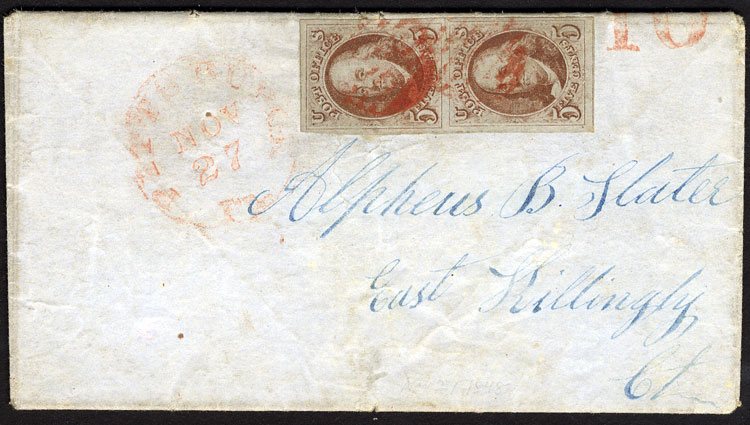 POST OFFICE
U S
5 5
POST OFFICE
U S
5 5
10
NOV
27
Alpheus B. Slater
East Killingly
Ct